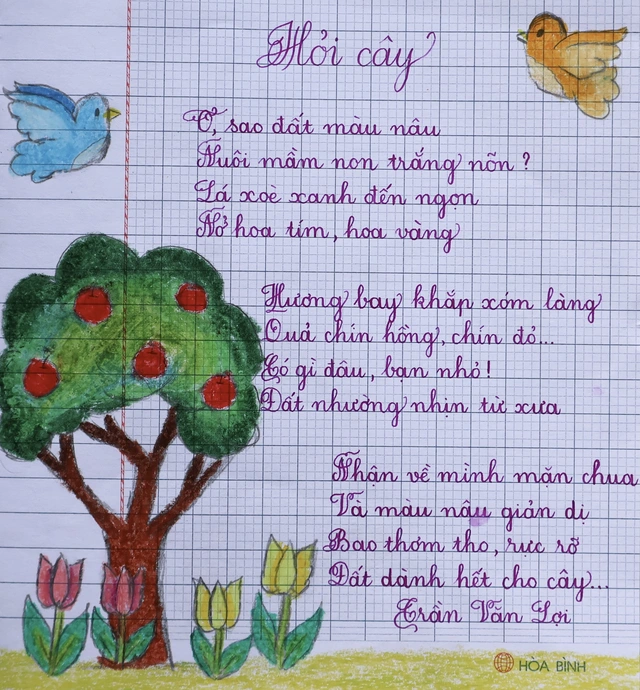 Hỏi cây
Ơ, sao đất màu nâu
Nuôi mầm non trắng nõn?
Lá xoè xanh đến ngọn
Nở hoa tím, hoa vàng
Hương bay khắp xóm làng
Quả chín hồng, chín đỏ...
Có gì đâu, bạn nhỏ!
Đất nhường nhịn từ xưa
Nhận về mình mặn chua
Và màu nâu giản dị
Bao thơm tho, rực rỡ
Đất dành hết cho cây...
Trần Văn Lợi
HÒA BÌNH